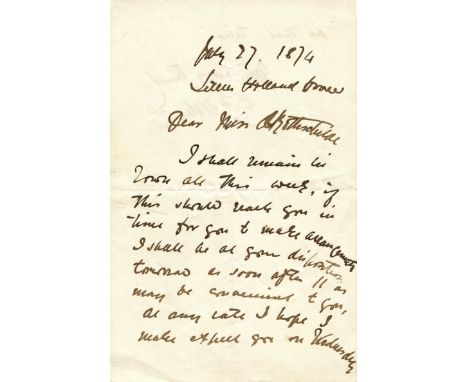 July 27. 1874
Little Holland House
Dear Miss Rothschild
I shall remain in
Town all this week, if
this should reach you in
time for you to make arrangements
I shall be at your disposition
tomorrow as soon after 11 as
may be convenient to you,
at any rate I hope I
make expect you on Wednesday